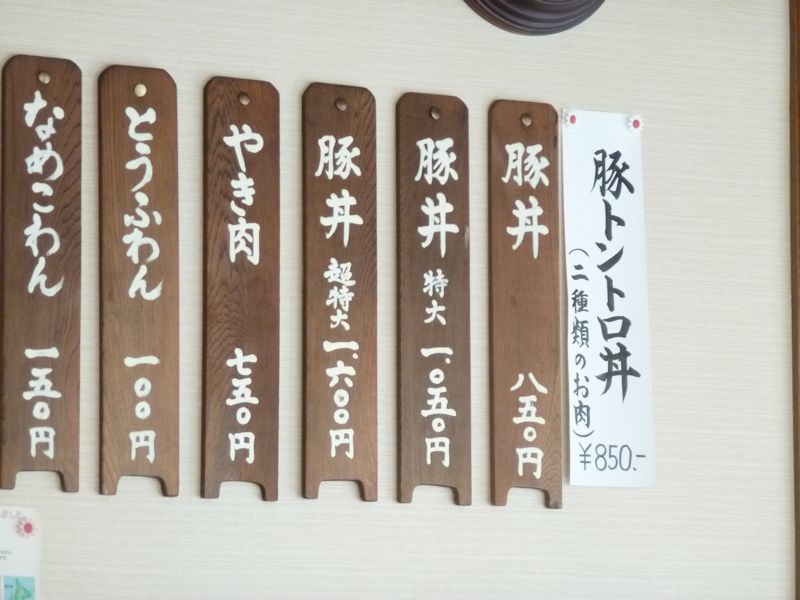 豚トントロ丼
(二種類のお肉)
¥850.-
豚丼 八五〇円
豚丼 特大 一、〇五〇円
豚丼 超特大 一、六〇〇円
やき肉 七五〇円
とうふわん 一〇〇円
なめこわん 一五〇円